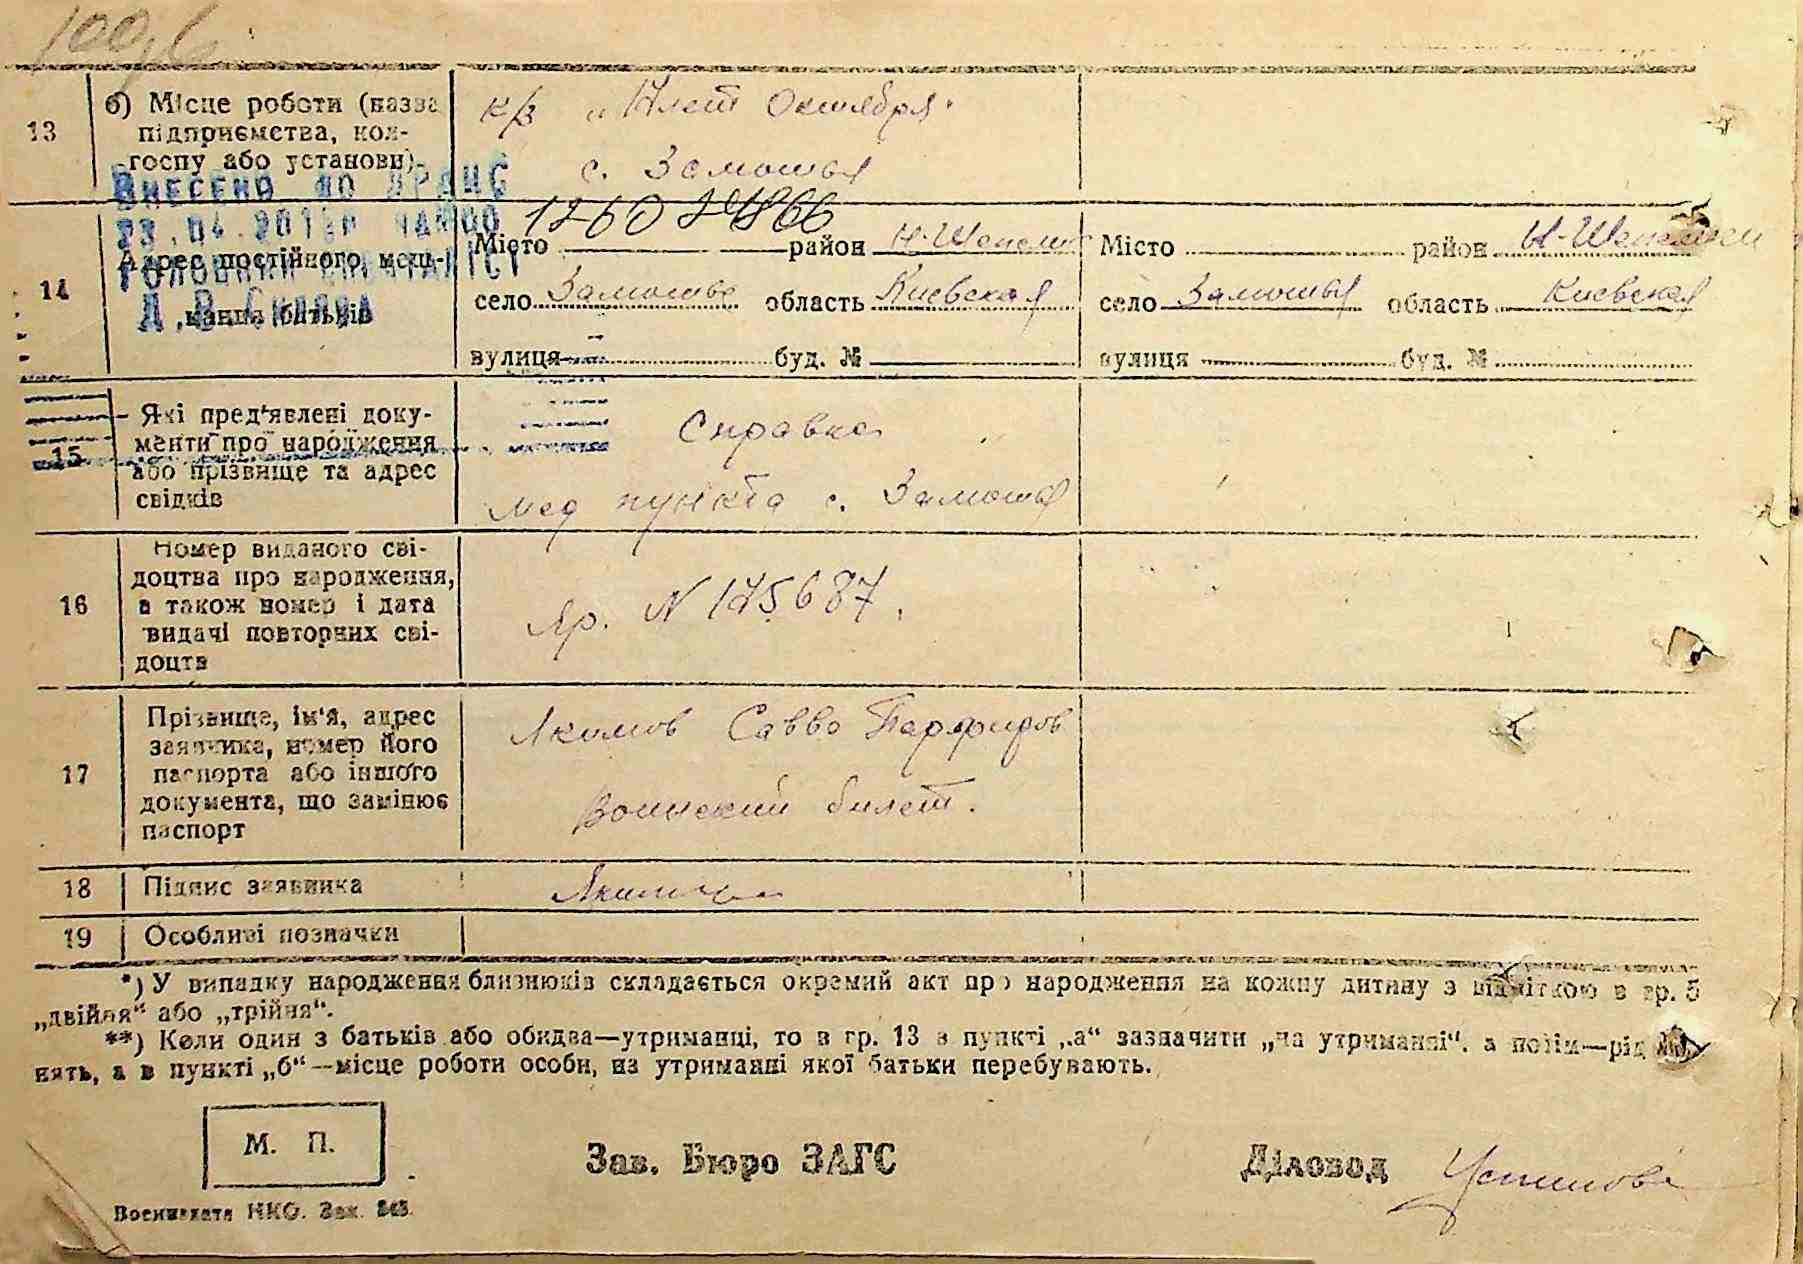 13
б) Місце роботи (назва
підприємства, кол-
госпу або установи)
к/з „17 лет Октября“
с. Замошья
ВНЕСЕНО ДО ДРАЦС
23.04.201
ГОЛОВНИЙ СПЕЦІАЛІСТ
14
Адрес постійного меш-
кання батьків
Місто район Н-Шепелич
село Замошье область Киевская
вулиця буд. №
Місто район Н-Шепелич
село Замошья область Киевская
вулиця буд. №
15
Які пред'явлені доку-
менти про народження
або прізвище та адрес
свідків
Справка
мед пункта с. Замошья
16
Номер виданого сві-
доцтва про народження,
а також номер і дата
видачі повторних сві-
доцтв
N 175687.
17
Прізвище, ім'я, адрес
заявника, номер його
паспорта або іншого
документа, що замінює
паспорт
Якимов Савво Парфиров
Воинский билет.
18
Підпис заявника
19
Особливі позначки
*) У випадку народження близнюків складається окремий акт про народження на кожну дитину з відміткою в гр. 5
„двійня“ або „трійня“.
**) Коли один з батьків або обидва—утриманці, то в гр. 13 в пункті „а“ зазначити „на утриманні“, а потім—рід
нять, а в пункті „б“—місце роботи особи, на утриманні якої батьки перебувають.
М. П.
Зав. Бюро ЗАГС
Діловод Устимова
НКО. Зак. 848